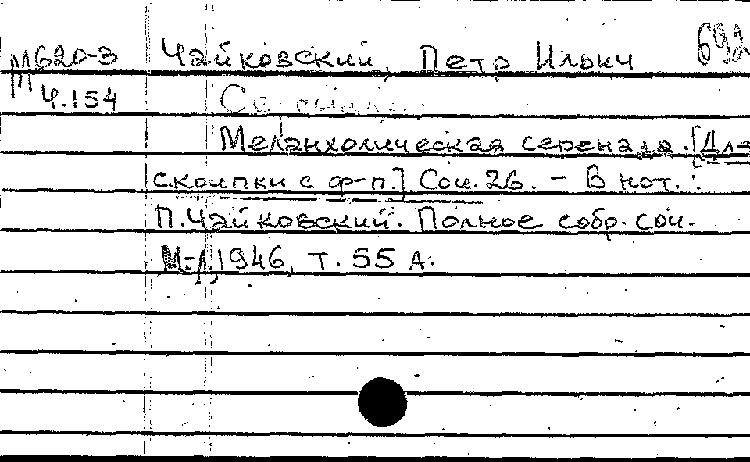 М620-3 Чайковский, Петр Ильич 692
Ч.154
Меланхолическая серенада. [Для
скрипки с ф-п.] Соч. 26. – В нот.:
П. Чайковский. Полное собр. соч.
М.-Л., 1946, т. 55 А.